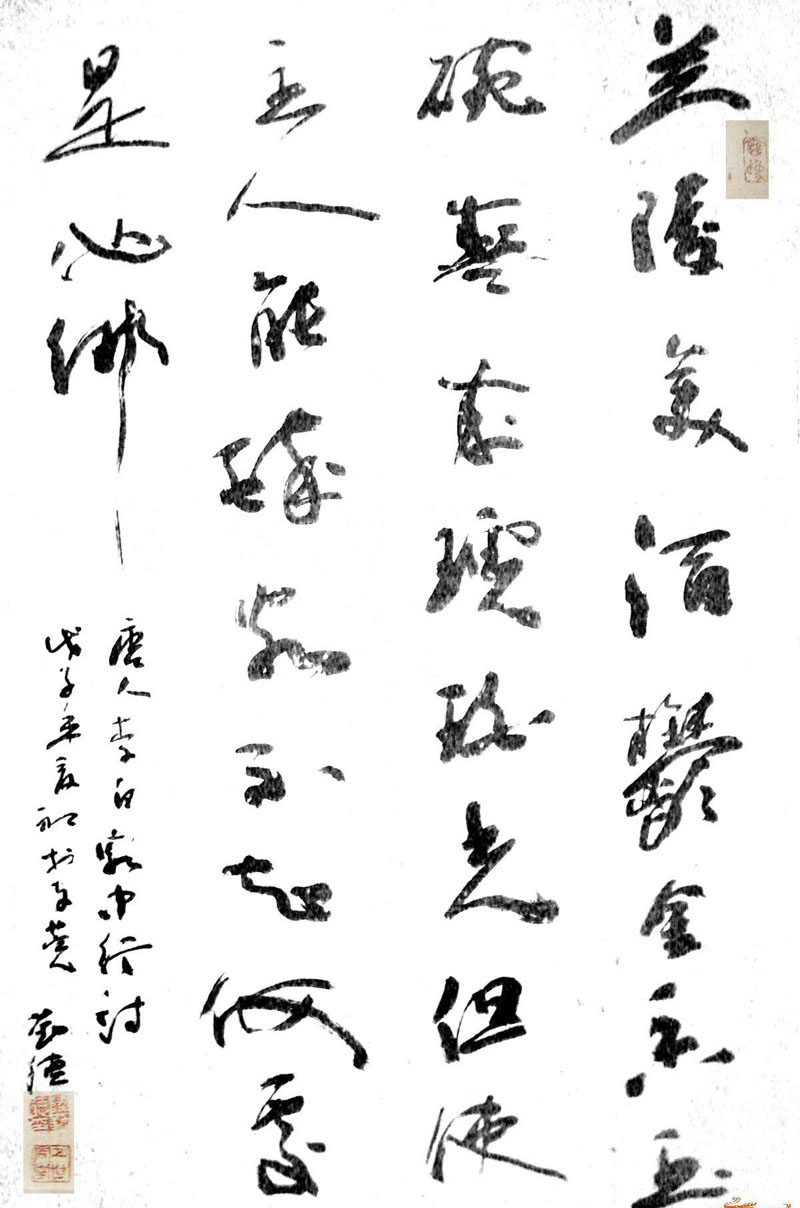 兰陵美酒鬱金香玉
碗盛来琥珀光但使
主人能醉客不知何處
是他鄉
唐人李白客中行詩
戊子年夏初於东莞